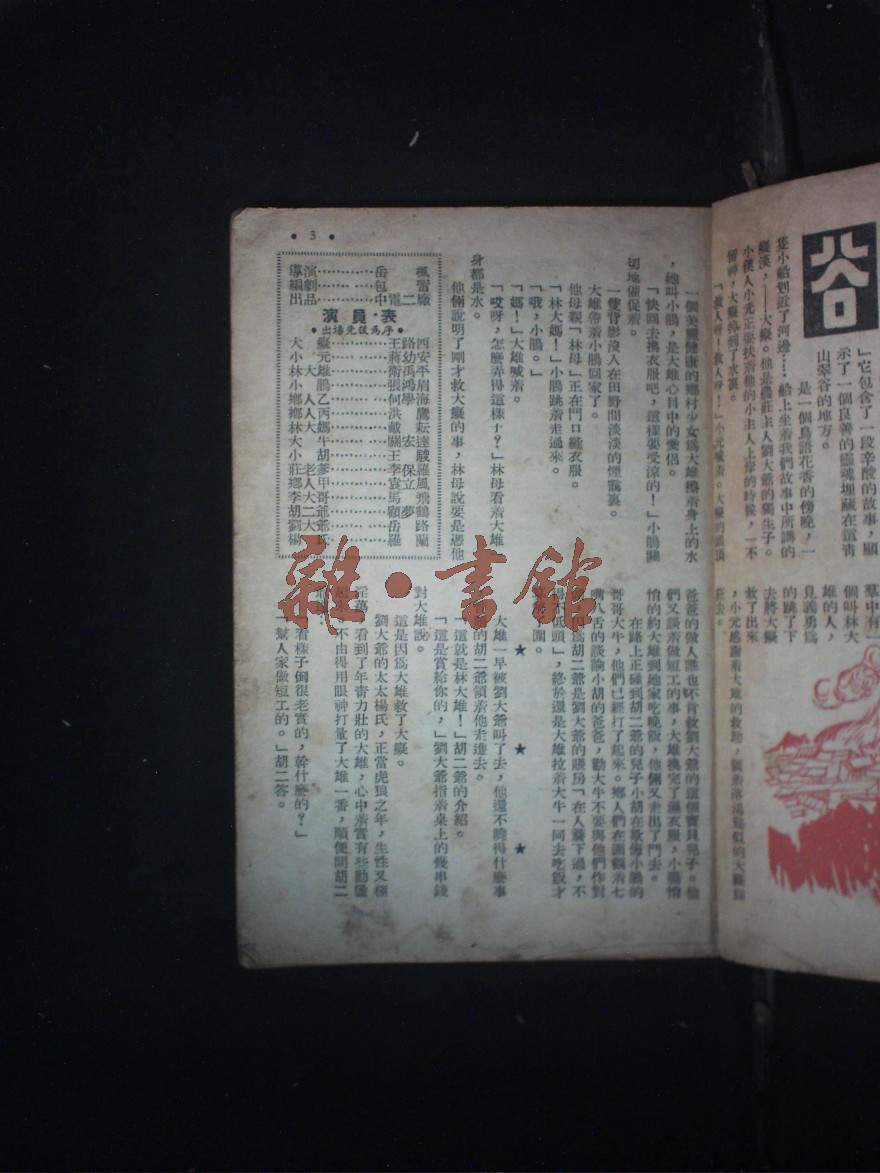 谷
」它包含了一段辛酸的故事,顯
示了一個良善的靈魂埋藏在這青
山翠谷的地方。
是一個鳥語花香的傍晚,一
隻小船划近了河邊……船上坐着我們故事中所講的
癡漢,——大癡。他是農莊主人劉大爺的獨生子。
小僕人小元正要扶着他的小主人上岸的時候,一不
留神,大癡掉到了水裏。
「救人呀!救人呀!」小元喊着。大癡的頭頂
羣中有一
個叫林大
雄的人,
見義勇爲
的跳了下
去將大癡
救了出來
,小元感謝着大雄的救助,領着似的大癡歸
莊去。
一個美麗健康的鄉村少女爲大雄擦着身上的水
,她叫小鵑,是大雄心目中的愛侶。
「快回去換衣服吧,這樣要受涼的!」小鵑關
切地催促着。
一雙背影沒入在田野間淡淡的煙靄裏。
大雄帶着小鵑回家了。
他母親「林母」正在門口縫衣服。
「林大媽!」小鵑跳着走過來。
「哦,小鵑。」
「媽!」大雄喊着。
「哎呀,怎麼弄得這樣子?」林母看着大雄
身都是水。
他倆說明了剛才救大癡的事,林母說要是憑他
出品……中電二廠
編劇……包雷
導演……岳楓
演員表
•出場先後爲序•
大癡……王路四
小元……蔣幼安
林大雄……衛禹平
小鵑……張鴻眉
鄉人乙……何學海
鄉人丙……洪鷹
林大媽……戴耘
大牛……關宏達
小胡……王駿
莊老爹……李保羅
鄉人甲……袁立風
李大哥……馬飛
胡二爺……顧夢鶴
劉大爺……岳路
楊氏……羅蘭
爸爸的做人誰也不肯救劉大爺的這個寶貝兒子。他
們又談着做短工的事,大雄換完了濕衣服,小鵑怡
怡的約大雄到她家吃晚飯,他倆又走出了門去。
在路上正碰到胡二爺的兒子小胡在欺侮小鵑的
哥哥大牛,他們已經打了起來。鄉人們在圍觀着七
嘴八舌的談論小胡的爸爸,勸大牛不要與他們作對
因爲胡二爺是劉大爺的賬房「在人簷下過,不
得不低頭」,終於還是大雄拉着大牛一同去吃飯才
★ ★ ★
大雄一早被劉大爺叫了去,他還不曉得什麼事
的胡二爺領着他走進去。
「這就是林大雄!」胡二爺的介紹。
「這是賞給你的,」劉大爺指着桌上的幾串錢
對大雄說。
這是因爲大雄救了大癡。
劉大爺的太太楊氏,正當虎狼之年,生性又極
淫蕩,看到了年青力壯的大雄,心中着實有些動
不由得用眼神打量了大雄一番,順便問胡二
「看樣子倒很老實的,幹什麼的?」
「幫人家做短工的。」胡二答。
• 3 •
雜•書館